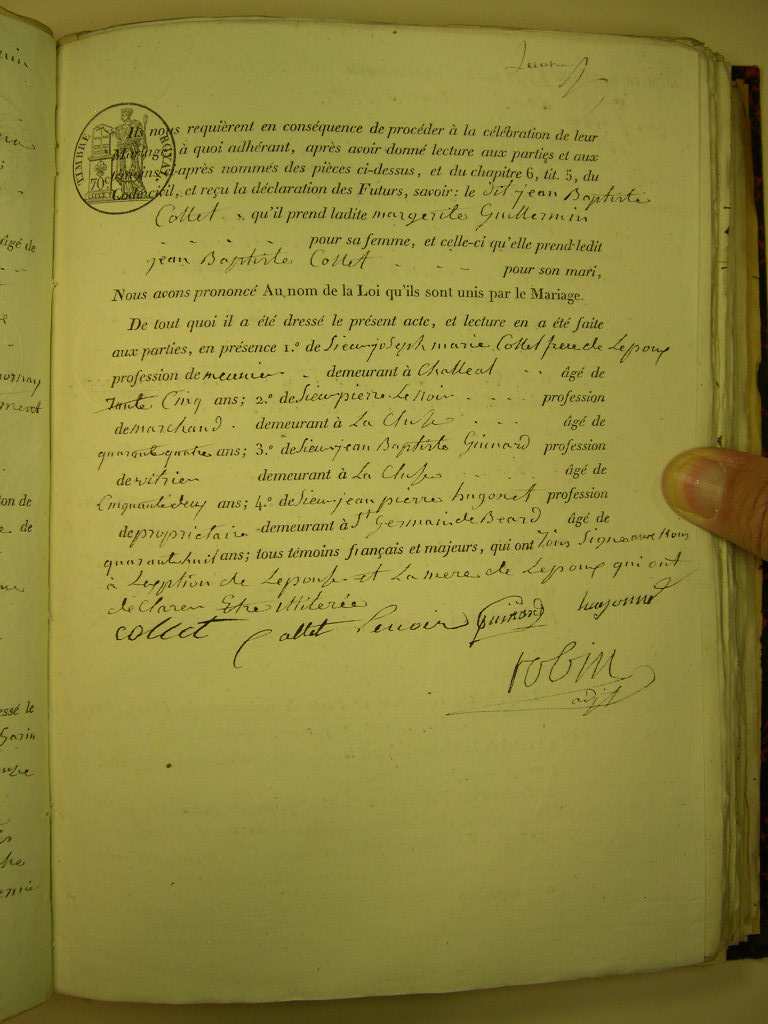 TIMBRE ROYAL
70c
Ils nous requièrent en conséquence de procéder à la célébration de leur
Mariage à quoi adhérant, après avoir donné lecture aux parties et aux
témoins ci-après nommés des pièces ci-dessus, et du chapitre 6, tit. 5, du
Code civil, et reçu la déclaration des Futurs, savoir: le dit jean Baptiste
Collet qu'il prend ladite margerite Guillermin
pour sa femme, et celle-ci qu'elle prend ledit
jean Baptiste Collet - - - pour son mari,
Nous avons prononcé Au nom de la Loi qu'ils sont unis par le Mariage.
De tout quoi il a été dressé le présent acte, et lecture en a été faite
aux parties, en présence 1.º de Sieur joseph marie Collet frere de Lepoux
profession de meunier - demeurant à Challeat - - âgé de
Trante Cinq ans; 2.º de Sieur pierre Lenoir - - - - profession
de marchand - demeurant à La Cluse - - - - âgé de
quarante quatre ans; 3.º de Sieur jean Baptiste Guinard profession
de vitrier demeurant à La Cluse - - - - âgé de
Cinquante deux ans; 4.º de Sieur jean pierre hugonet profession
de proprietaire - demeurant à St Germain de Beard âgé de
quarante huit ans; tous témoins français et majeurs, qui ont Tous Signe avec Nous
à Lexption de Lepouse et La mere de Lepoux qui ont
de Claren Etre illiterée
collet Collet Lenoir Guinard hugonnet
robin
adjt